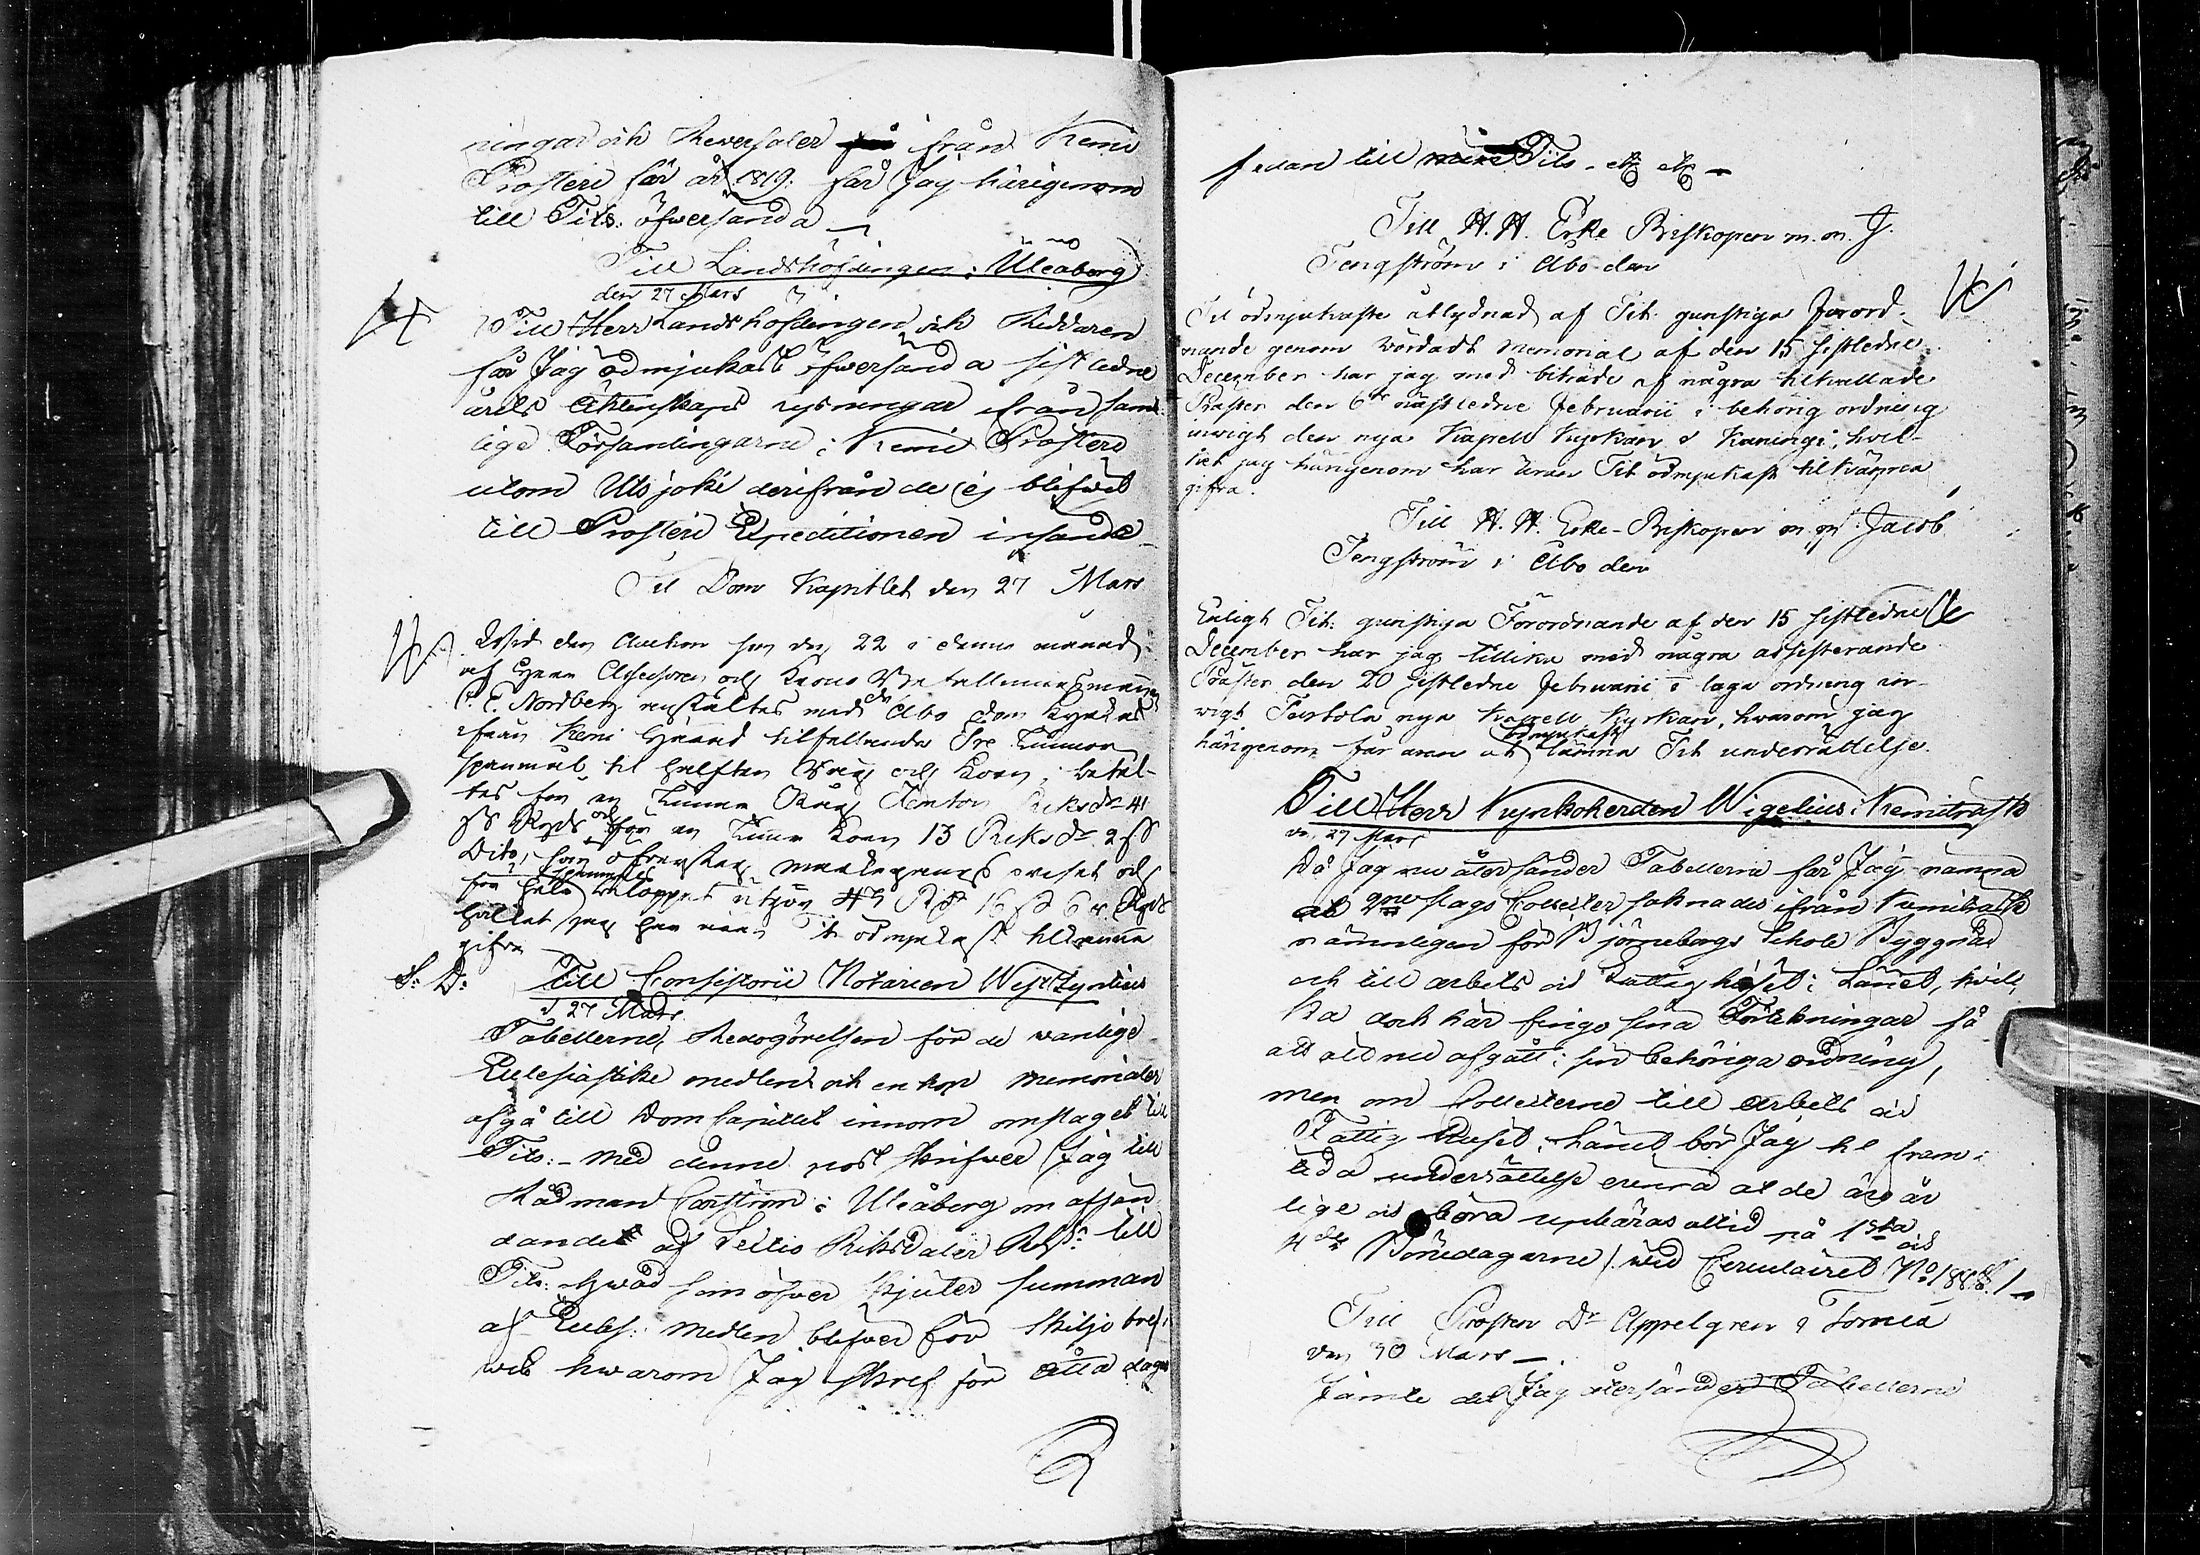 ningar och Reversaler från Kemi
Prosteri för år 1819: får Jag härigenom
till Tits: öfversända
Till Landshöfdingen i Uleåborg
den 27 Mars
Till Herr Landshöfdingen och Riddaren
får Jag ödmjukast öfversända sistledne
årets Äktenskaps lysningar ifrån samt-
lige Församlingarne i Kemi Prosteri
utom Utsjoki derifrån de ej blifvit
till Prosteri Expeditionen insände
Til Dom Kapitlet den 27 Mars
Wid den Auction som den 22 i denne månad
af Herr Assessoren och Krono Befallningsmannen
C. E. Nordberg anstältes med de Åbo Dom Kyrka
ifrån Kemi Härad tilfallande Tre Tunnor
spanmål til hälften Råg och Korn, betal-
tes för en Tunna Råg Femton Riksdr 41
ß Rgds och för en Tunna Korn 13 Riksdr 2 ß
Dito, som öfversteg markegångs priset och
för hela spanmåls beloppet utgör 43 Rdr 16 ß 6 r Rgds
hvilket jag har äran Tit ödmjukast tilkänna
gifva
S. D. Till Consistorii Notarien Wist: Zyndius
d 27 Mars
Tabellerne, Redogörelsen för de vanlige
Ecclesiastike medlen och en hop memorialer
afgå till Dom Capitlet innom omslaget till
Tits: – Med denne post skrifver Jag till
Rådman Carström i Uleåborg om afsän-
dandet af Sextio Riksdaler Rgs: till
Tits: hvad som öfver skjuter summan
af Eccles: medlen blifver för skiljobref
web hvarom Jag skref för åtta dagar
sedan till Tits – etc etc –
Till H. H. Erke Biskopen m. m. J.
Tengström i Åbo den
Til ödmjukaste åtlydnad af Tit: gunstiga Förord-
nande genom vördadt Memorial af den 15 sistledne
December har jag med biträde af några tilkallade
Präster den 6te nästledne Februarii i behörig ordning
invigt den nya Kapell Kyrkan i Kuningi, hvil-
ket jag härigenom har äran Tit ödmjukast tilkänna
gifva.
Till H. H. Erke-Biskopen m. m. Jacob
Tengström i Åbo den
Enligt Tit: gunstiga Förordnande af den 15 sistledne
December har jag tillika med några adsisterande
Präster den 20 sistledne Februarii i laga ordning in-
vigt Turtola nya Kapell Kyrkan, hvarom jag
härigenom får äran at ödmjukast lämna Tit underrättelse.
Till Herr Kyrkoherden Wigelius i Kemiträsk
den 27 Mars
Då Jag nu återsänder Tabellerne får Jag nämna
at 2ne slags Collecter saknades ifrån Kemiträsk
nämnligen för Björneborgs Schole Byggnad
och till arbets och Fattighuset i Länet, hvil-
ka dock här fingo sina Förtekningar så
att alt nu afgått i sin behöriga ordning,
men om Collecterne till arbets och
Fattig Huset i Länet bör Jag til fram-
tida underrättelse erinra at de äro år
lige och böra upbäras altid på 1sta och
4de Bönedagarne /: wid Circulairet No 188 §. 1
Till Prosten Dr Appelgren i Torneå
den 30 Mars –
Jämte det Jag återsänder Tabellerne